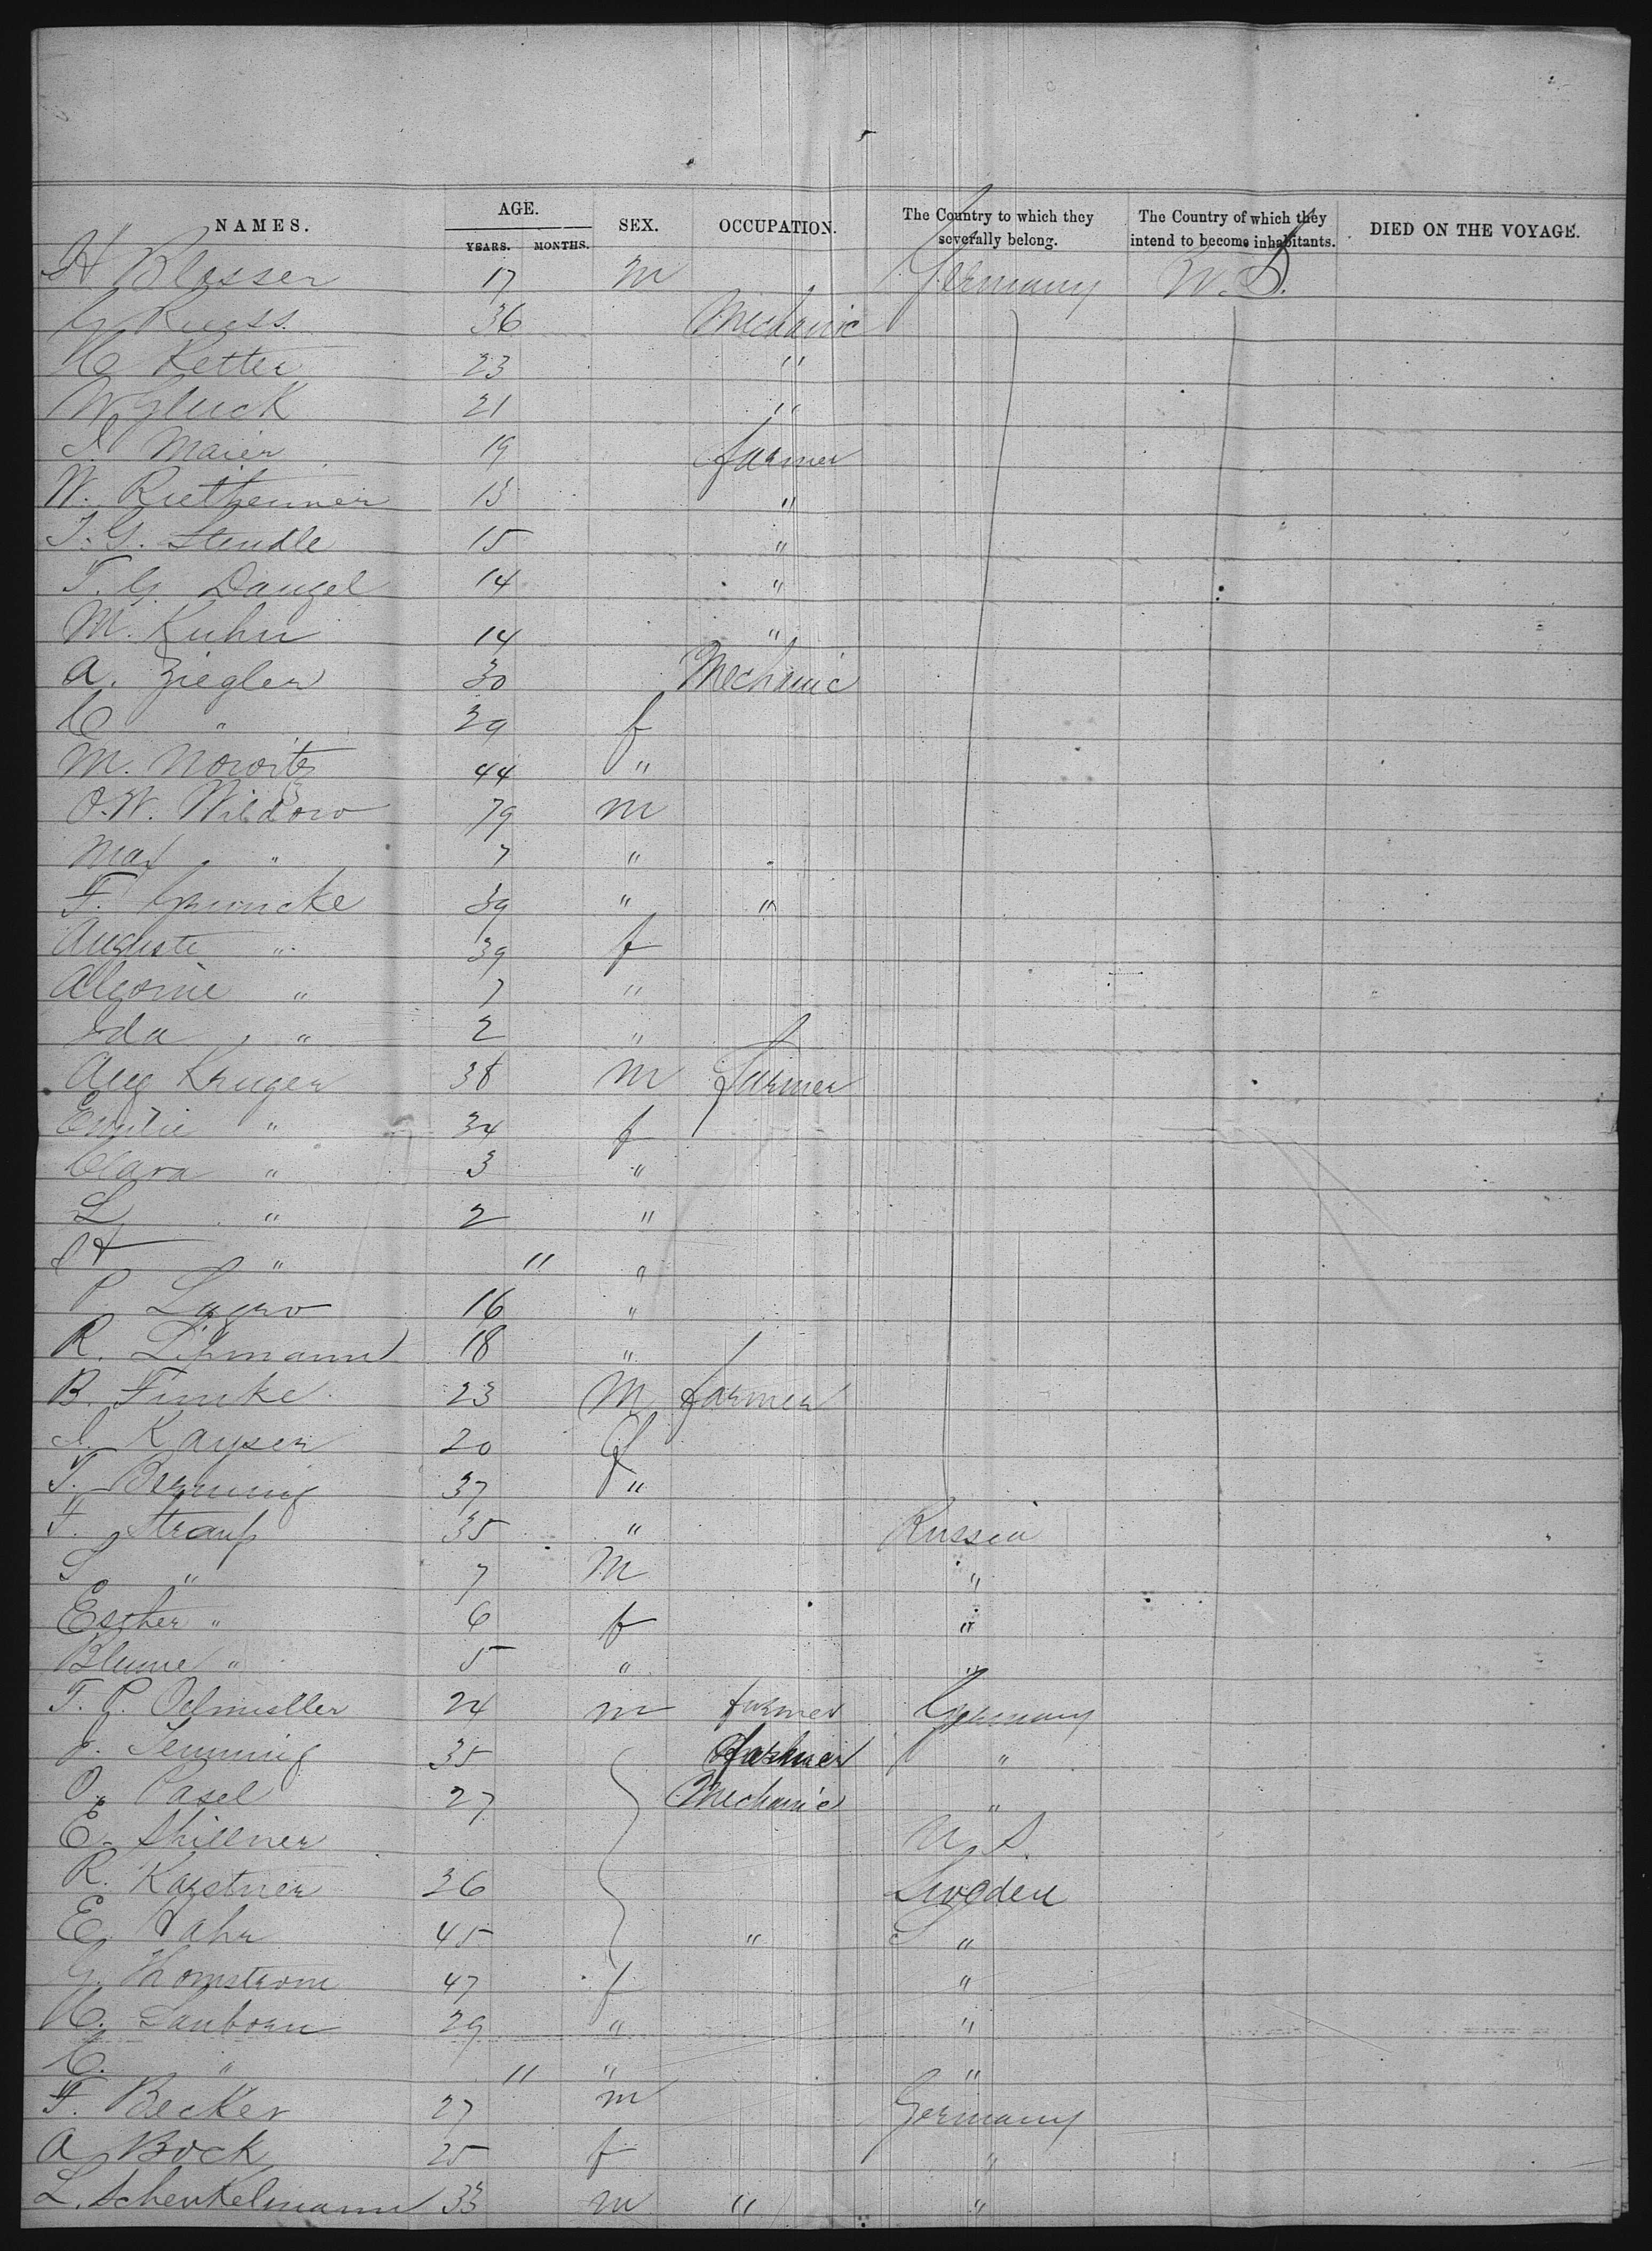 NAMES. AGE. SEX. OCCUPATION. The Country to which they severally belong. The Country of which they intend to become inhabitants. DIED ON THE VOYAGE.
YEARS. MONTHS.
H Blesser 17 m Germany U.S.
G Ruess. 36 Mechanic
C Retter 23 "
W Gluck 21 "
I. Maier 19 farmer
W. 13 "
T. G. Stendle 15 "
T. G. Dangel 14 "
M. Kuhn 14 "
A. Ziegler 30 Mechanic
C " 29 f
M. Noroitz 44 "
O. W. Wildow 79 m
Max " 7 "
F. 39 " "
Auguste " 39 f
" 7 "
Ida " 2 "
Aug Kruger 38 m Farmer
Emilie " 34 f
Clara " 3 "
L " 2 "
" 11 "
P Lagro 16 "
R. Lipmann 18 "
B. Funke 23 M farmer
I. Kayser 20 f
T. Berning 37 "
F. Strauss 35 " Russia
S " 7 M "
Esther " 6 f "
Blume " 5 " "
T. P. Oelmuller 24 m farmer Germany
J. Temming 35 farmer "
O. Casel 27 Mechanic "
E. Skillner U. S.
R. Karstner 36 Sweden
E. Hahr 45 " "
G. Thornstrom 47 f "
C. Sanborn 29 " "
C. " 11 " "
F. Becker 27 m Germany
A Bock 25 f "
L. Schenkelmann 33 m " "